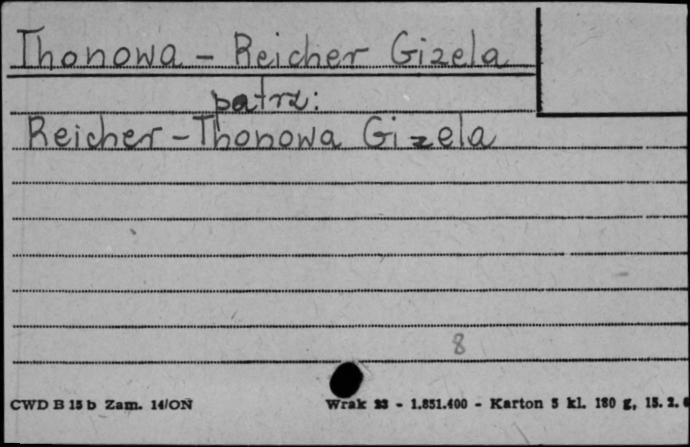 Thonowa - Reicher Gizela
patrz:
Reicher-Thonowa Gizela
8
CWD B 15 b Zam. 14/ON Wrak 23 - 1.851.400 - Karton 5 kl. 180 g, 15. 2.